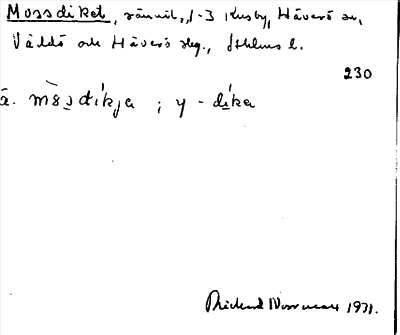 Mossdiket, rännil, 1-3 Kusby, Häverö sn,
Väddö och Häverö skg., Sthlms l.
230
ä. mös dikja ; y - dika
Rickard 1931.